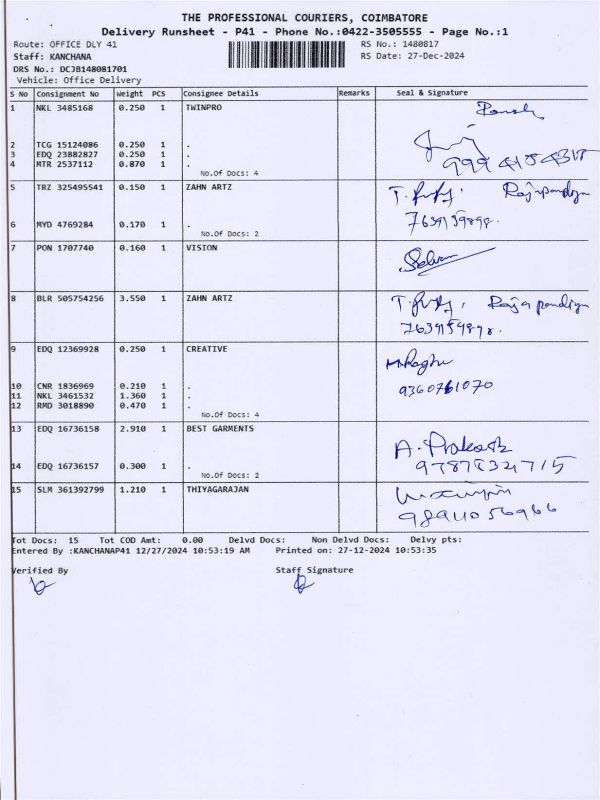 THE PROFESSIONAL COURIERS, COIMBATORE
Delivery Runsheet - P41 - Phone No.:0422-3505555 - Page No.:1
Route: OFFICE DLY 41 RS No.: 1480817
Staff: KANCHANA RS Date: 27-Dec-2024
DRS No.: DCJB148081701
Vehicle: Office Delivery
S No Consignment No Weight PCS Consignee Details Remarks Seal & Signature
1 NKL 3485168 0.250 1 TWINPRO
2 TCG 15124086 0.250 1 .
3 EDQ 23882827 0.250 1 .
4 MTR 2537112 0.870 1 .
No.Of Docs: 4
5 TRZ 325495541 0.150 1 ZAHN ARTZ Rajapandiyan
6 MYD 4769284 0.170 1 .
No.Of Docs: 2
7 PON 1707740 0.160 1 VISION Selvam
8 BLR 505754256 3.550 1 ZAHN ARTZ Rajapandiyan
9 EDQ 12369928 0.250 1 CREATIVE M.Raghu
10 CNR 1836969 0.210 1 . 9360761070
11 NKL 3461532 1.360 1 .
12 RMD 3018890 0.470 1 .
No.Of Docs: 4
13 EDQ 16736158 2.910 1 BEST GARMENTS A. Prakash
14 EDQ 16736157 0.300 1 .
No.Of Docs: 2
15 SLM 361392799 1.210 1 THIYAGARAJAN
Tot Docs: 15 Tot COD Amt: 0.00 Delvd Docs: Non Delvd Docs: Delvy pts:
Entered By :KANCHANAP41 12/27/2024 10:53:19 AM Printed on: 27-12-2024 10:53:35
Verified By Staff Signature